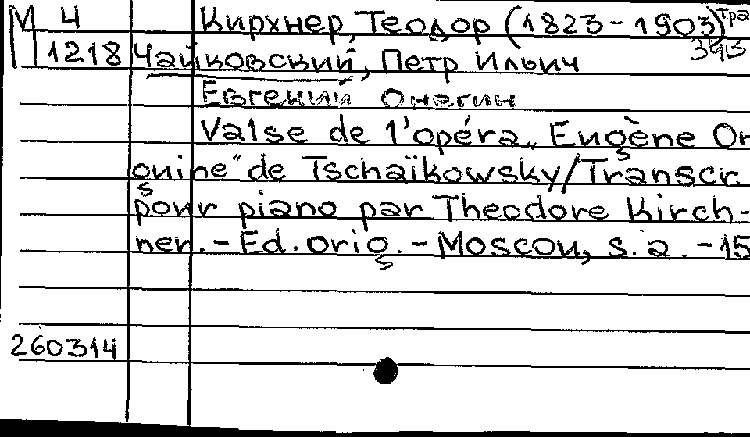 М 4 Кирхнер, Теодор (1823-1903) тра
1218 Чайковский, Петр Ильич
Евгений Онегин
Valse de l'opéra „Eugène On
ouine" de Tschaïkowsky/Transcr.
pour piano par Theodore Kirch-
ner. - Ed. orig. - Moscou, s. a. - 15
260314